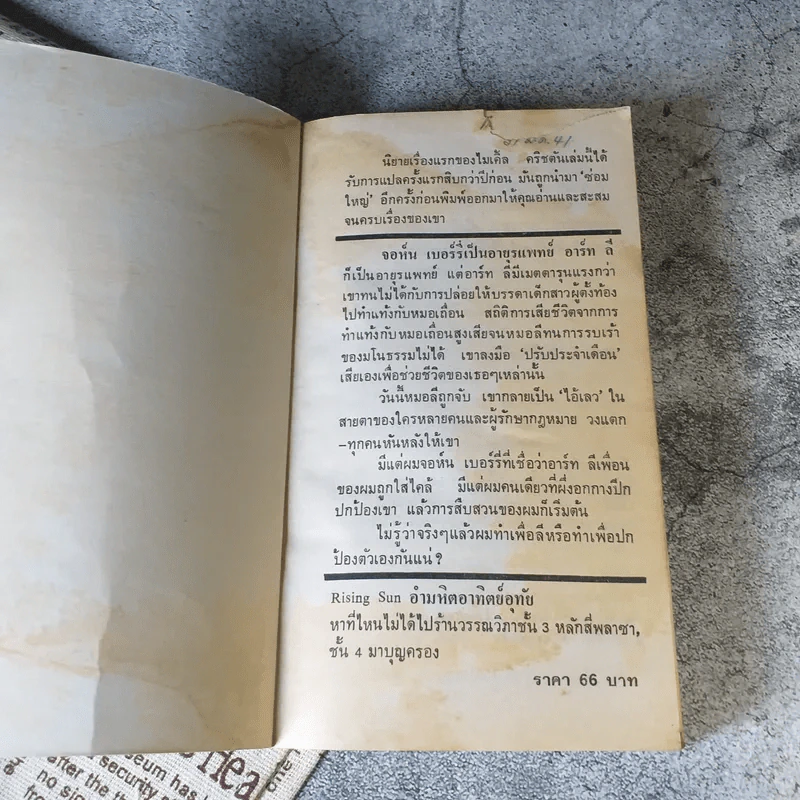 นิยายเรื่องแรกของไมเคิ้ล คริชตันเล่มนี้ได้
รับการแปลครั้งแรกสิบกว่าปีก่อน มันถูกนำมา ‘ซ่อม
ใหญ่’ อีกครั้งก่อนพิมพ์ออกมาให้คุณอ่านและสะสม
จนครบเรื่องของเขา
จอห์น เบอร์รี่เป็นอายุรแพทย์ อาร์ท ลี
ก็เป็นอายุรแพทย์ แต่อาร์ท ลีมีเมตตารุนแรงกว่า
เขาทนไม่ได้กับการปล่อยให้บรรดาเด็กสาวผู้ตั้งท้อง
ไปทำแท้งกับหมอเถื่อน สถิติการเสียชีวิตจากการ
ทำแท้งกับหมอเถื่อนสูงเสียจนหมอลีทนการรบเร้า
ของมโนธรรมไม่ได้ เขาลงมือ ‘ปรับประจำเดือน’
เสียเองเพื่อช่วยชีวิตของเธอๆเหล่านั้น
วันนี้หมอลีถูกจับ เขากลายเป็น ‘ไอ้เลว’ ใน
สายตาของใครหลายคนและผู้รักษากฎหมาย วงแตก
-ทุกคนหันหลังให้เขา
มีแต่ผมจอห์น เบอร์รี่ที่เชื่อว่าอาร์ท ลีเพื่อน
ของผมถูกใส่ไคล้ มีแต่ผมคนเดียวที่ผึ่งอกกางปีก
ปกป้องเขา แล้วการสืบสวนของผมก็เริ่มต้น
ไม่รู้ว่าจริงๆแล้วผมทำเพื่อลีหรือทำเพื่อปก
ป้องตัวเองกันแน่?
Rising Sun อำมหิตอาทิตย์อุทัย
หาที่ไหนไม่ได้ไปร้านวรรณวิภาชั้น 3 หลักสี่พลาซา,
ชั้น 4 มาบุญครอง
ราคา 66 บาท
security
after the
no
one